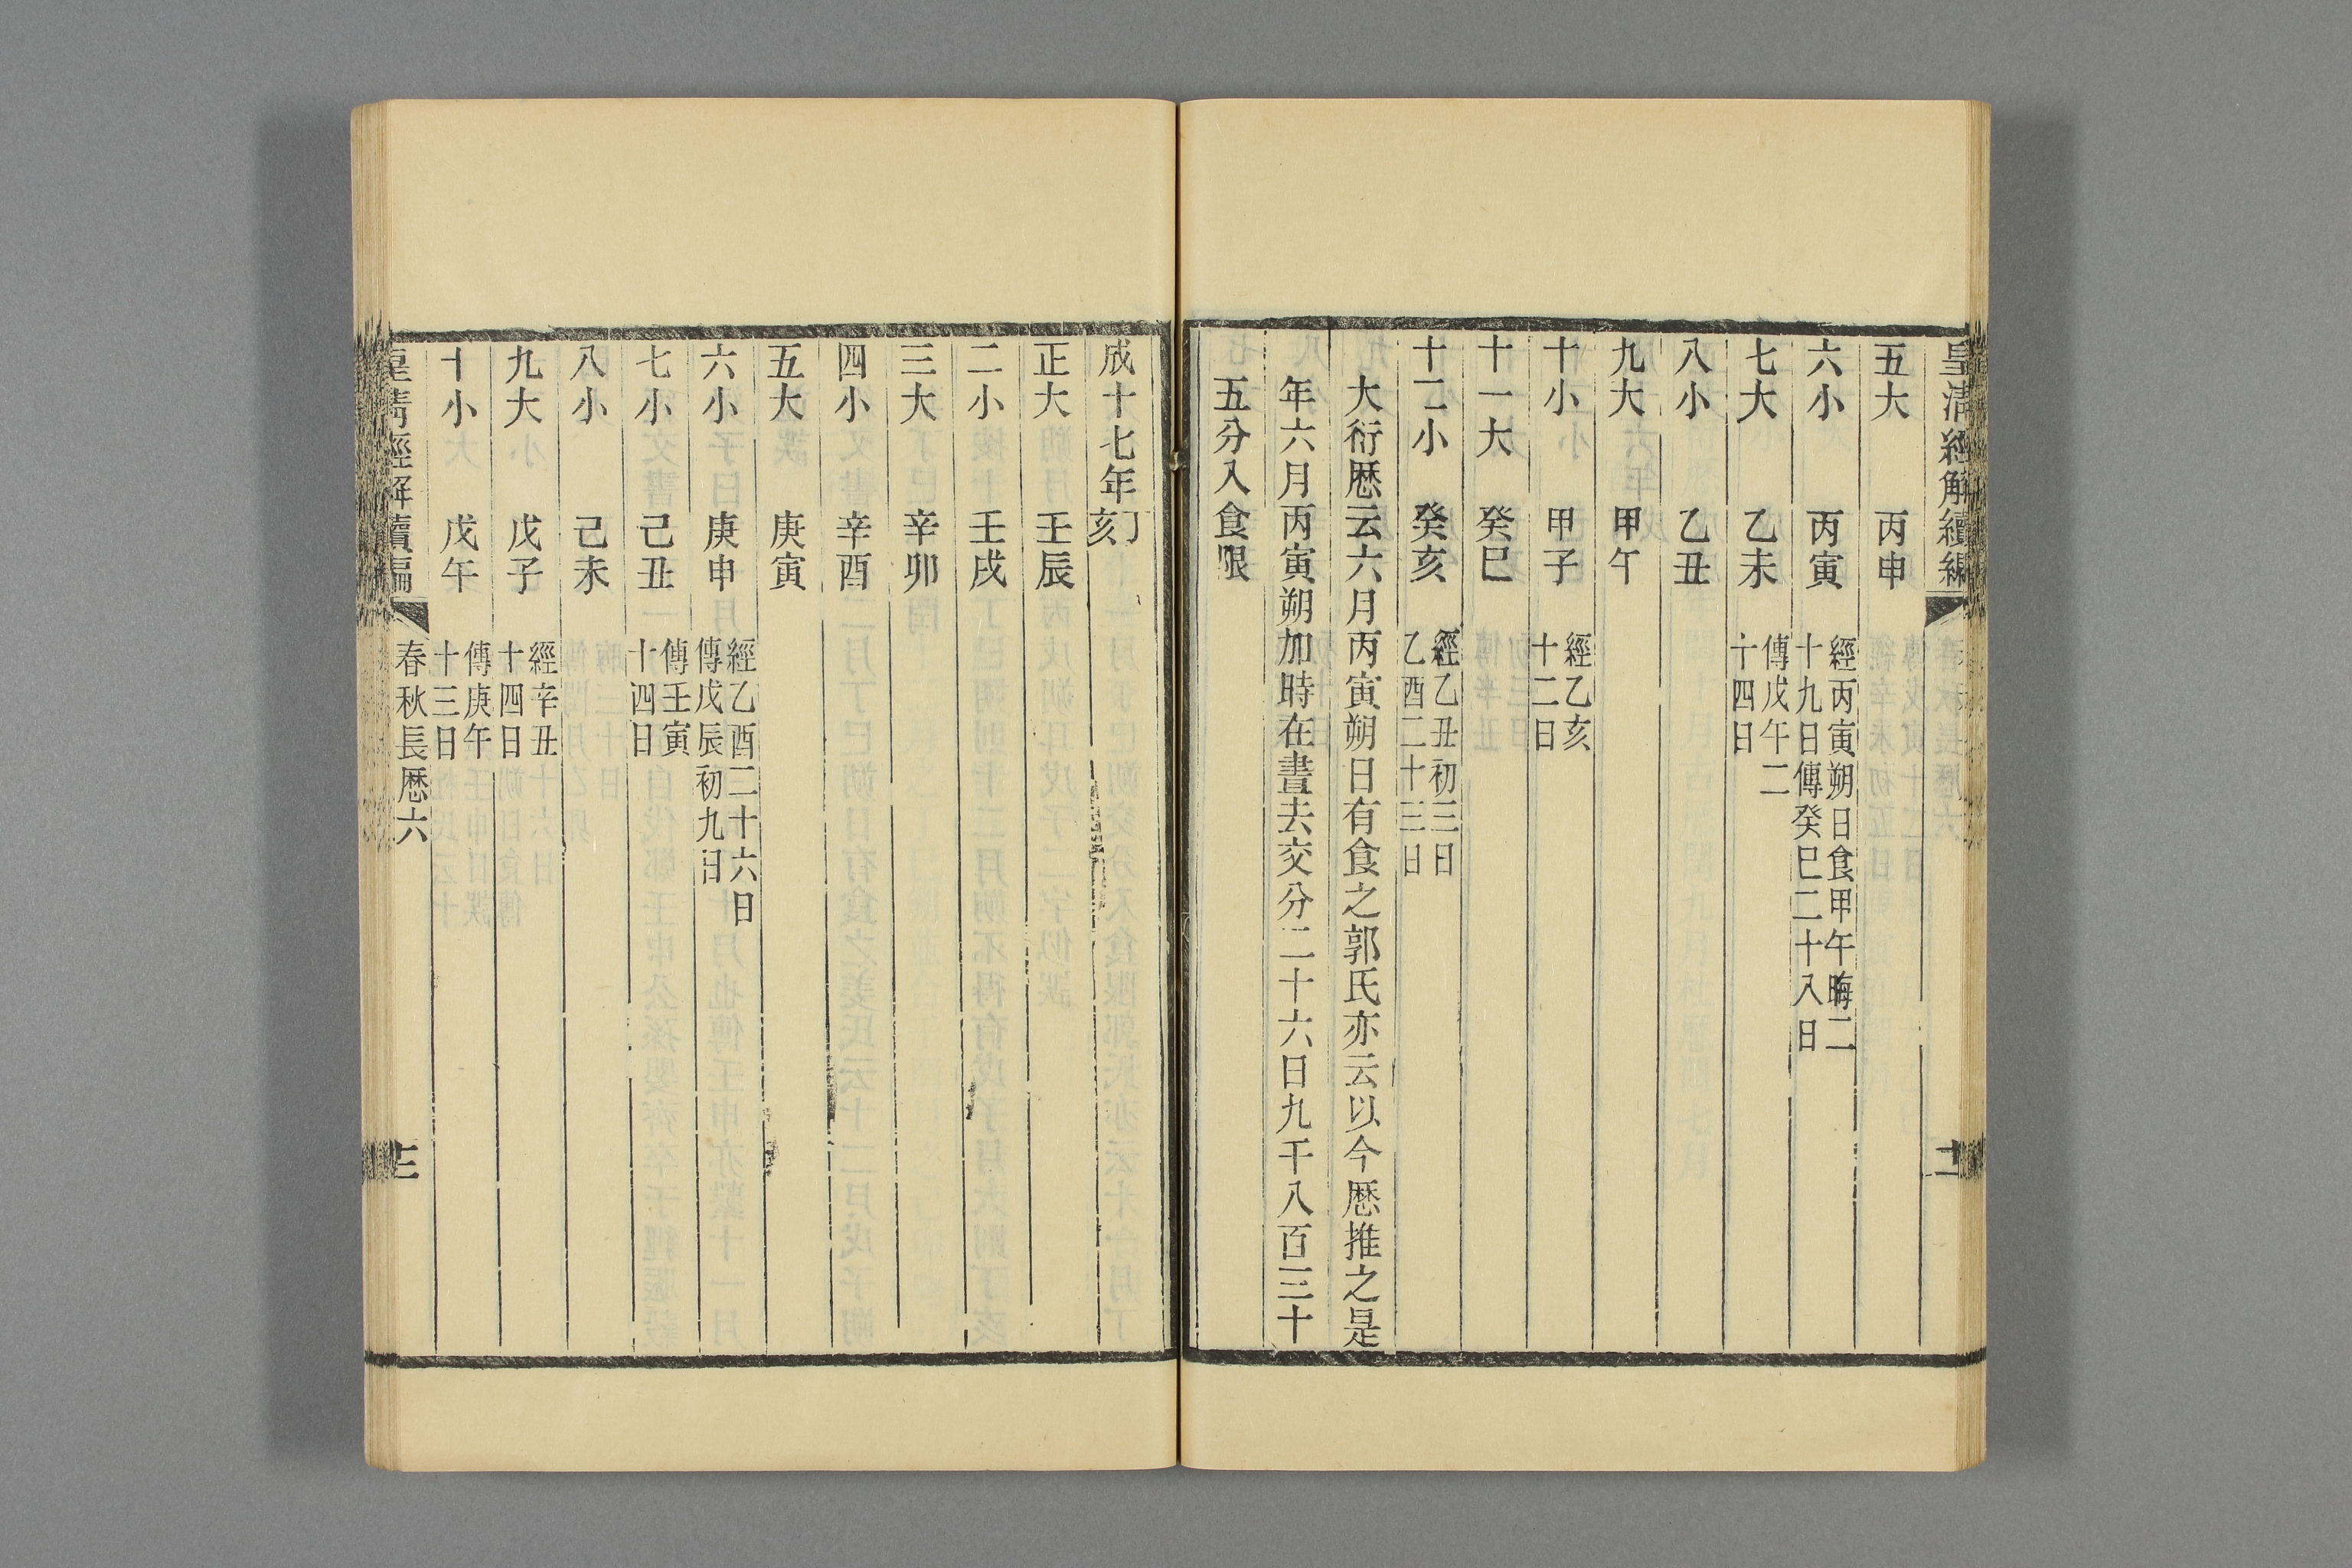 皇清經解續編
五大　丙申
六小　丙寅　經丙寅朔日食甲午晦二
十九日傳癸巳二十八日
七大　乙未　傳戊午二
十四日
八小　乙丑
九大　甲午
十小　甲子　經乙亥
十二日
十一大　癸巳
十二小　癸亥　經乙丑初三日
乙酉二十三日
大衍厯云六月丙寅朔日有食之郭氏亦云以今厯推之是
年六月丙寅朔加時在晝去交分二十六日九千八百三十
五分入食限
成十七年丁
亥
正大　壬辰
二小　壬戌
三大　辛卯
四小　辛酉
五大　庚寅
六小　庚申　經乙酉二十六日
傳戊辰初九日
七小　己丑　傳壬寅
十四日
八小　己未
九大　戊子　經辛丑
十四日
十小　戊午　傳庚午
十三日
皇清經解續編　春秋長厯六